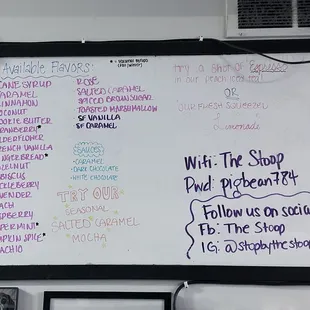 Available Flavors:
* = SEASONAL
CANE SYRUP
CARAMEL
CINNAMON
COCONUT
COOKIE BUTTER
CRANBERRY*
ELDERFLOWER
FRENCH VANILLA
GINGERBREAD*
HAZELNUT
HIBISCUS
HUCKLEBERRY
LAVENDER
PEACH
RASPBERRY
PEPPERMINT*
PUMPKIN SPICE*
PISTACHIO
ROSE
SALTED CARAMEL
SPICED BROWN SUGAR
TOASTED MARSHMALLOW
SF VANILLA
SF CARAMEL
SAUCES:
-CARAMEL
-DARK CHOCOLATE
-WHITE CHOCOLATE
TRY OUR
SEASONAL
SALTED CARAMEL
MOCHA
TRY A SHOT OF Espresso
in our peach iced tea
OR
OUR FRESH SQUEEZED
Lemonade
Wifi: The Stoop
Pwd: pigbean784
Follow us on social
Fb: The Stoop
IG: @stopbythestoop